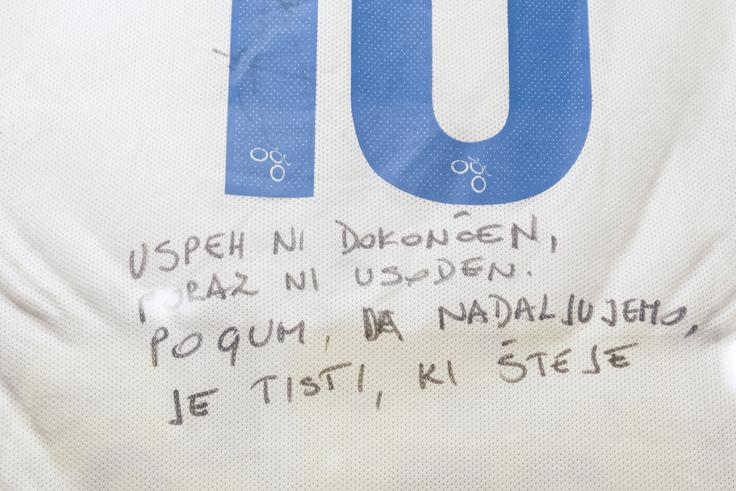 10
USPEH NI DOKONČEN,
PORAZ NI USODEN.
POGUM, DA NADALJUJEMO,
JE TISTI, KI ŠTEJE